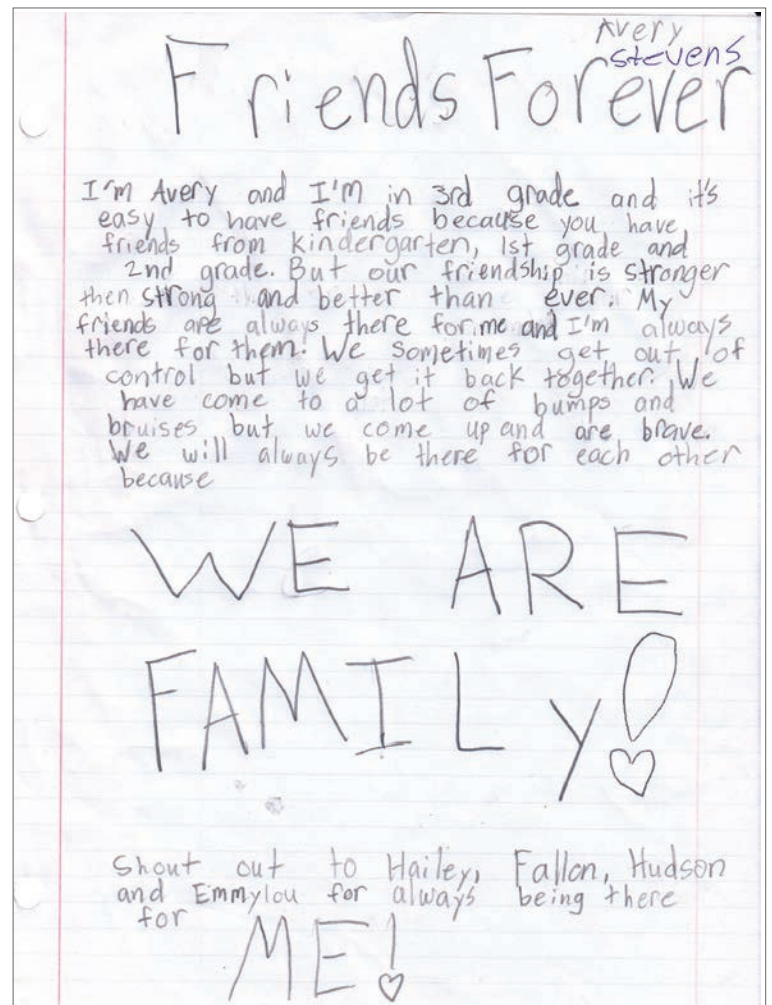 Avery
stevens
Friends Forever
I'm Avery and I'M in 3rd grade and it's
easy to have friends because you have
friends from kindergarten, 1st grade and
2nd grade. But our friendship is stronger
then strong and better than ever. My
friends are always there for me and I'm always
there for them. We sometimes get out of
control but we get it back together. We
have come to a lot of bumps and
bruises but we come up and are brave.
We will always be there for each other
because
WE ARE
FAMILy!
Shout out to Hailey, Fallon, Hudson
and Emmylou for always being there
for
ME!